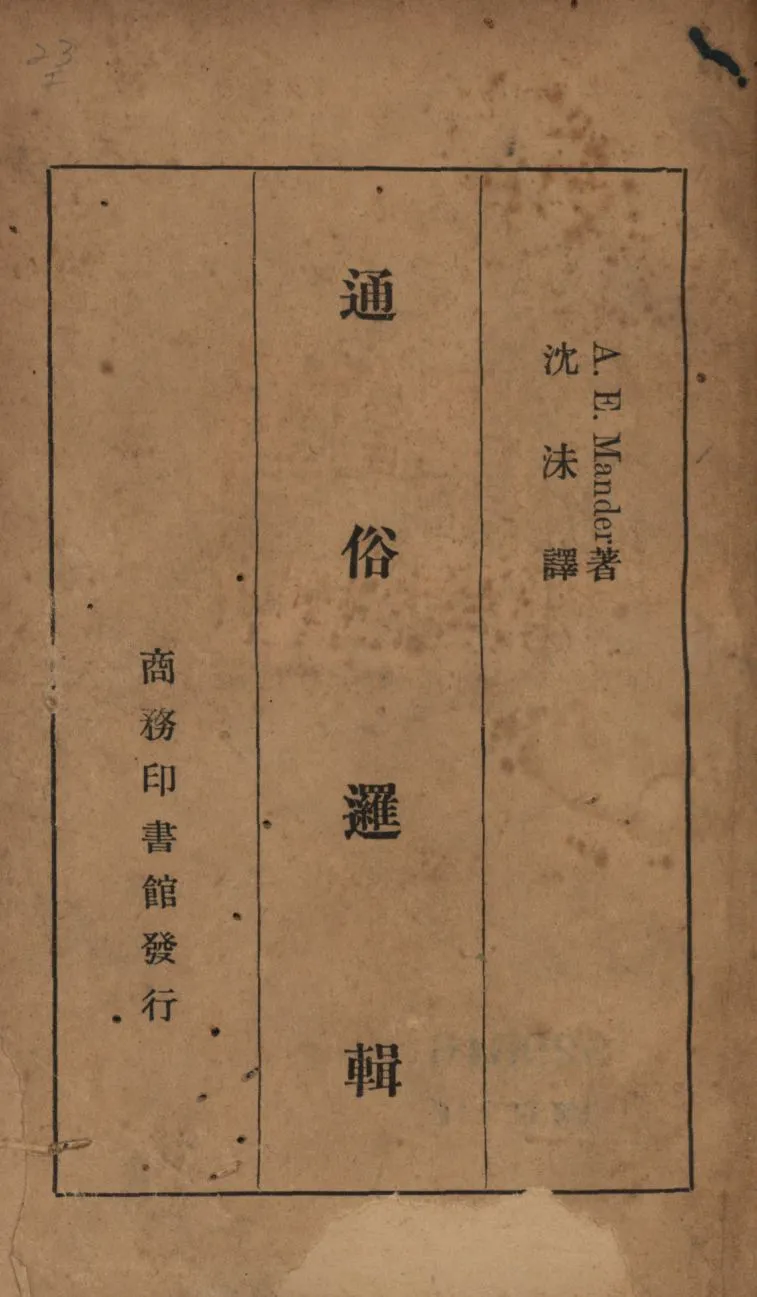 A. E. Mander著
沈沬譯
通俗邏輯
商務印書館發行
23